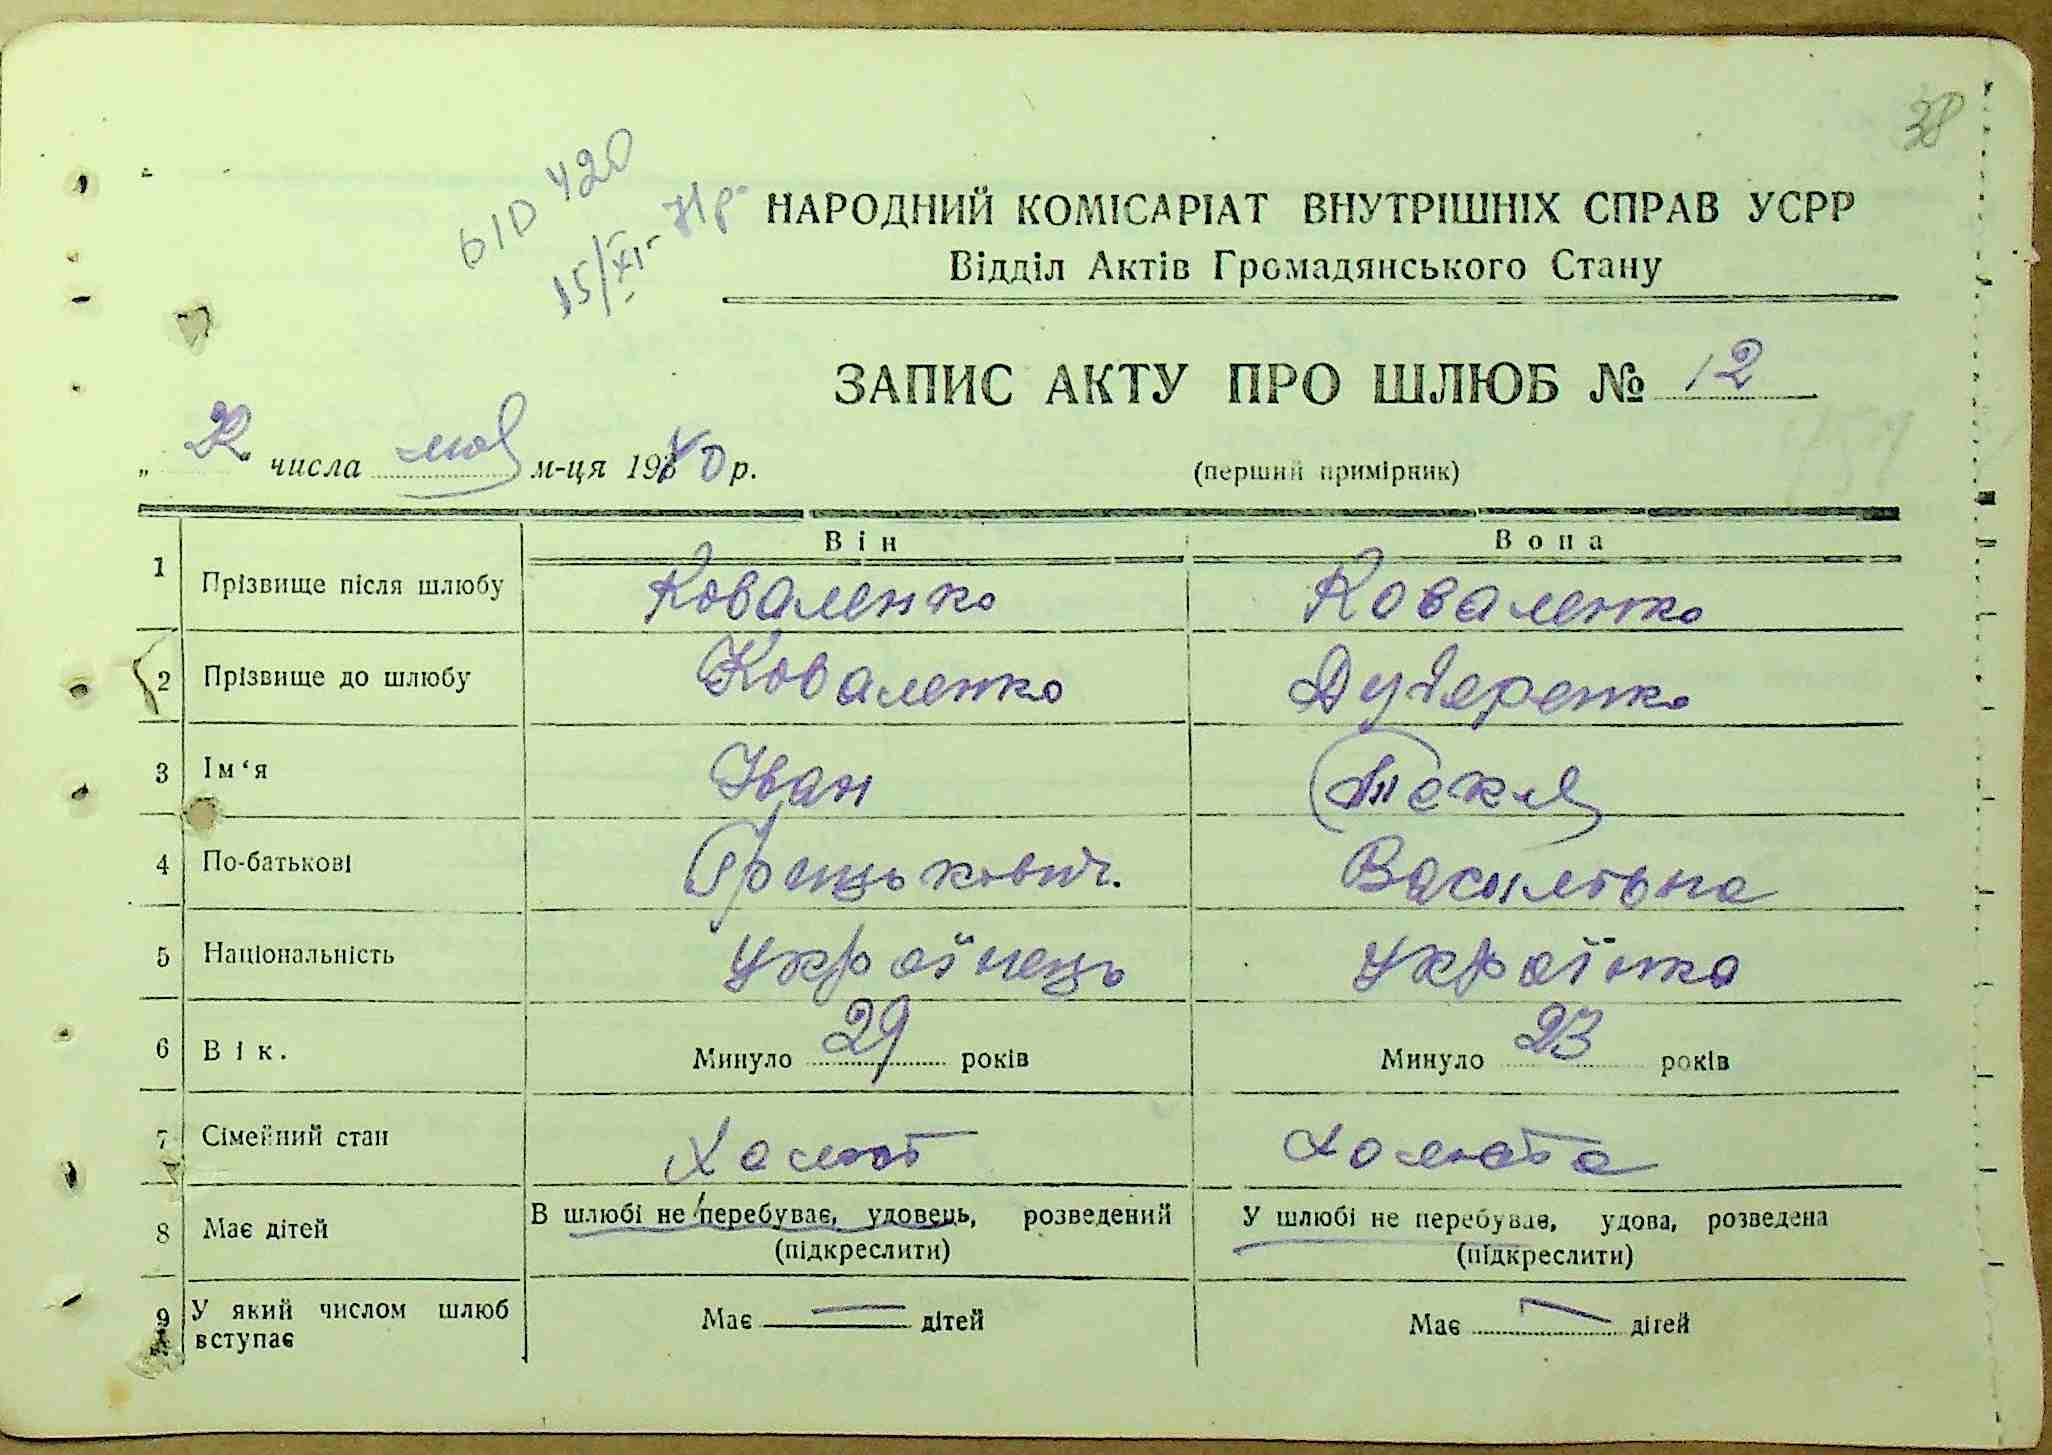 38
БІО 420
15/XI-71р
НАРОДНИЙ КОМІСАРІАТ ВНУТРІШНІХ СПРАВ УСРР
Відділ Актів Громадянського Стану
ЗАПИС АКТУ ПРО ШЛЮБ № 12
„ 22 " числа мая м-ця 1940 р.
(перший примірник)
Він Вона
1 Прізвище після шлюбу Коваленко Коваленко
2 Прізвище до шлюбу Коваленко
3 Ім‘я Іван Текля
4 По-батькові Грецькович. Васильвна
5 Національність Українець Українка
6 Вік. Минуло 29 років Минуло 23 років
7 Сімейний стан Холост Холоста
8 Має дітей В шлюбі не перебуває, удовець, розведений У шлюбі не перебував, удова, розведена
(підкреслити) (підкреслити)
9 У який числом шлюб Має — дітей Має — дітей
вступає